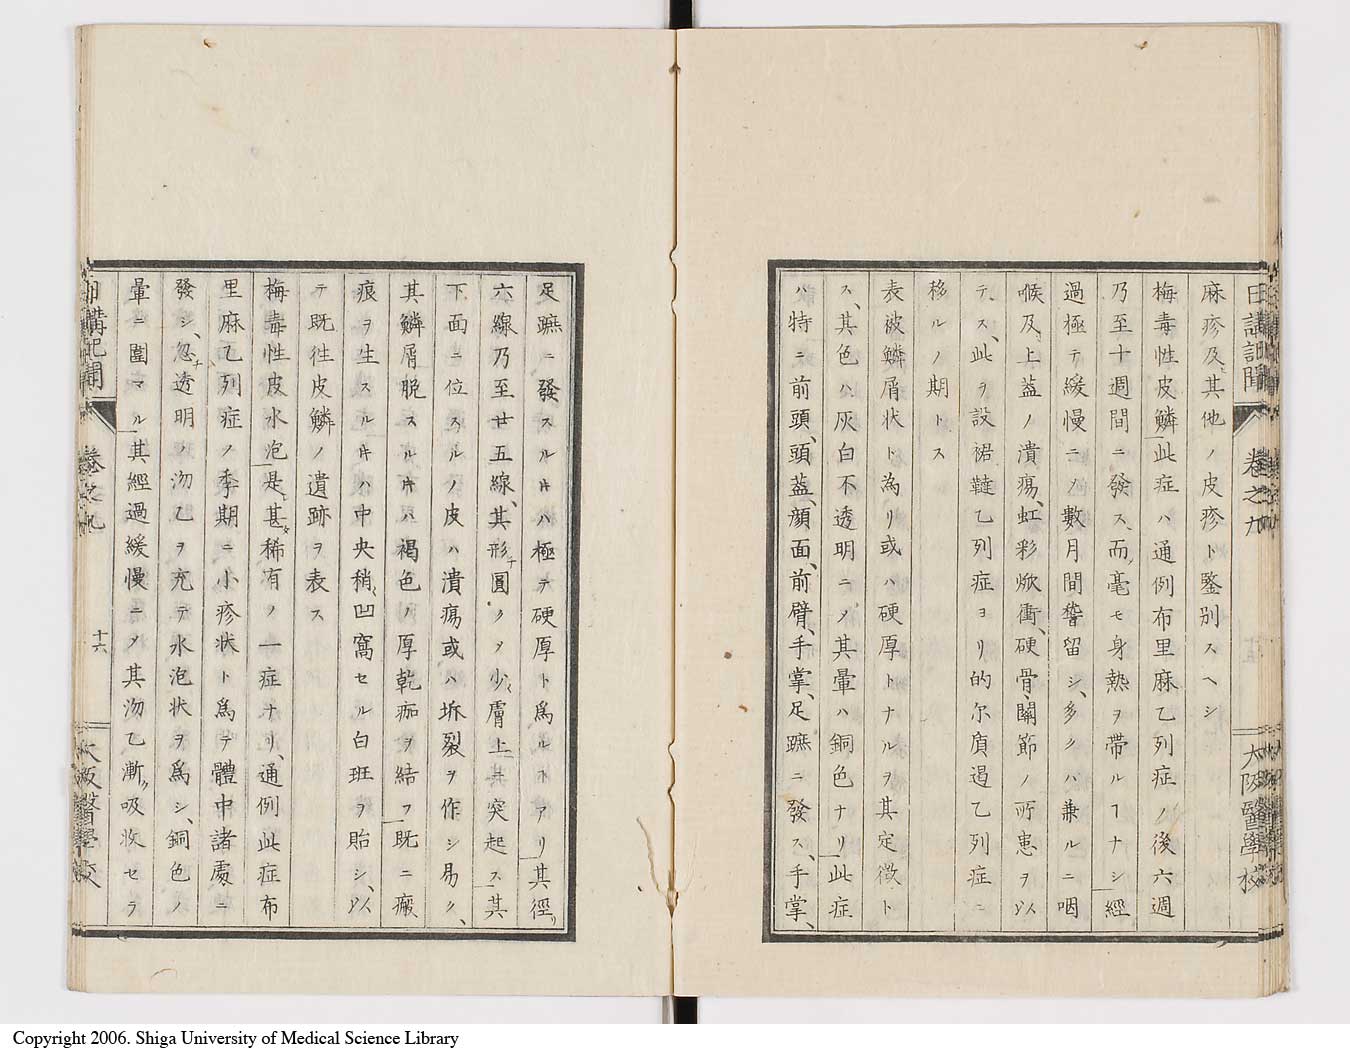 日講記聞
卷之九
大阪醫學校
麻疹及其他ノ皮疹ト鑒別スヘシ
梅毒性皮鱗此症ハ通例布里麻乙列症ノ後六週
乃至十週間ニ發ス、而ノ毫モ身熱ヲ帶ルヿナシ經
過極テ緩慢ニノ數月間稽留シ、多クハ兼ルニ咽
喉及上葢ノ潰瘍、虹彩焮衝、硬骨、關節ノ所患ヲ以
テス、此ヲ設裙韃乙列症ヨリ的尔貭過乙列症ニ
移ルノ期トス
表被鱗屑状ト為リ或ハ硬厚トナルヲ其定徴ト
ス、其色ハ灰白不透明ニノ其暈ハ銅色ナリ此症
ハ特ニ前頭、頭葢、顔面、前臂、手掌、足蹠ニ發ス、手掌、
足蹠ニ發スルキハ極テ硬厚ト爲ルトアリ其徑リ
六線乃至廿五線、其形チ圓クノ少ク膚上ニ突起ス其
下面ニ位スルノ皮ハ潰瘍或ハ坼裂ヲ作シ易ク、
其鱗屑脫スルキハ褐色ノ厚乾痂ヲ結フ既ニ瘢
痕ヲ生スルキハ中央稍凹窩セル白斑ヲ貽シ、以
テ既徃皮鱗ノ遺跡ヲ表ス
梅毒性皮水泡是甚タ稀有ノ一症ナリ、通例此症布
里麻乙列症ノ季期ニ小疹状ト爲テ體中諸處ニ
發シ、忽チ透明ノ沕乙ヲ充テ水泡状ヲ爲シ、銅色ノ
暈ニ圍マル其經過緩慢ニノ其沕乙漸ク吸收セラ
日講記聞
卷之九
十六
大阪醫學校
Copyright 2006. Shiga University of Medical Science Library